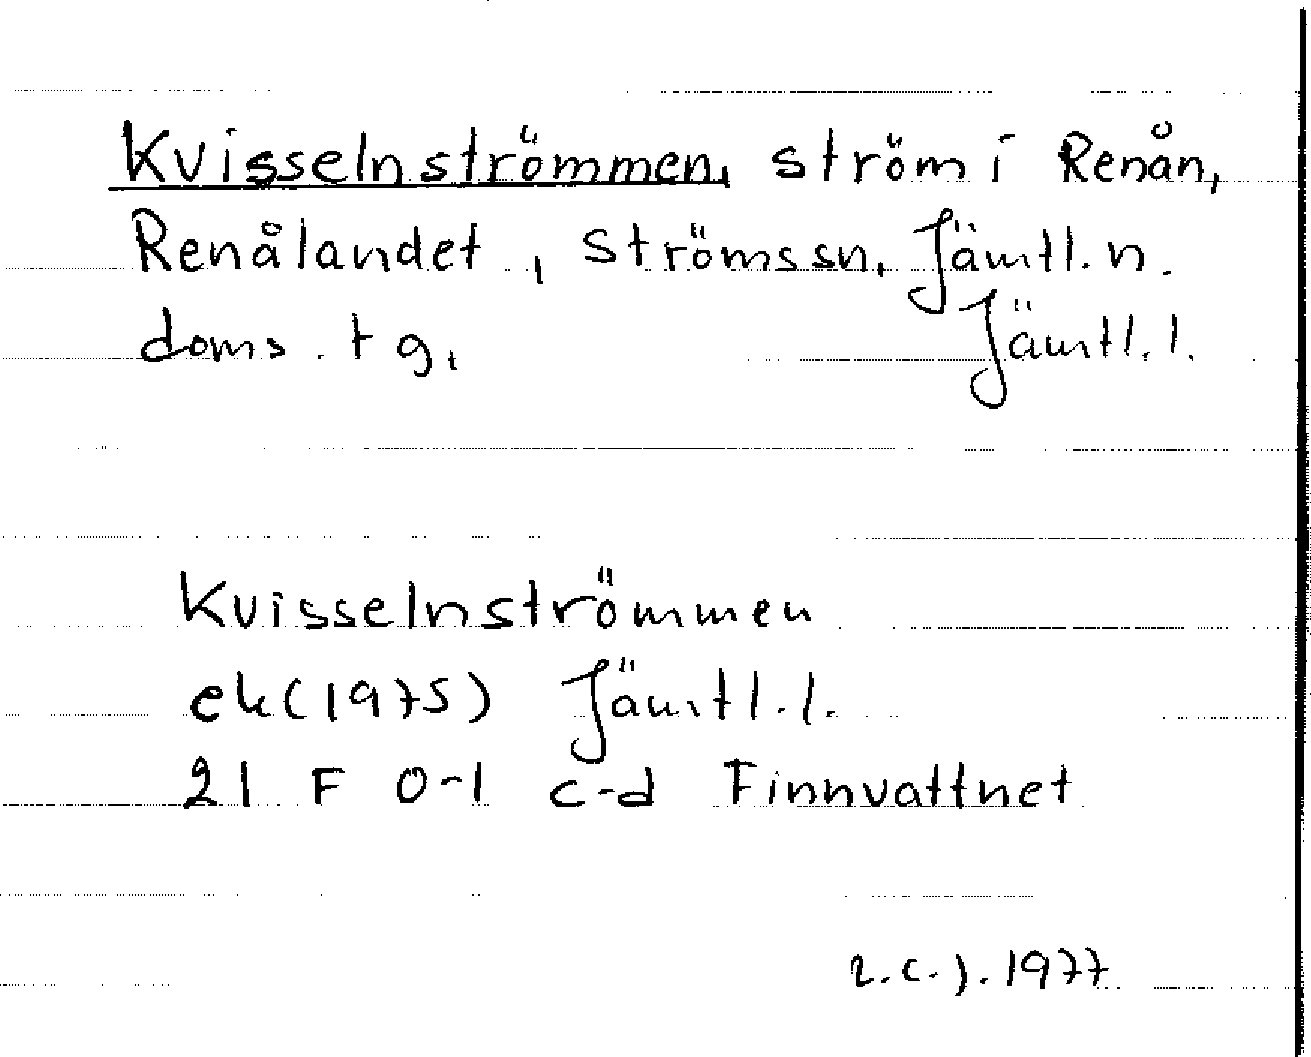 Kvisselnströmmen, ström i Renån,
Renålandet, Strömssn, Jämtl. n.
doms. tg, Jämtl. l.
Kvisselnströmmen
ek (1975) Jämtl. l.
21 F 0-1 c-d Finnvattnet
1977